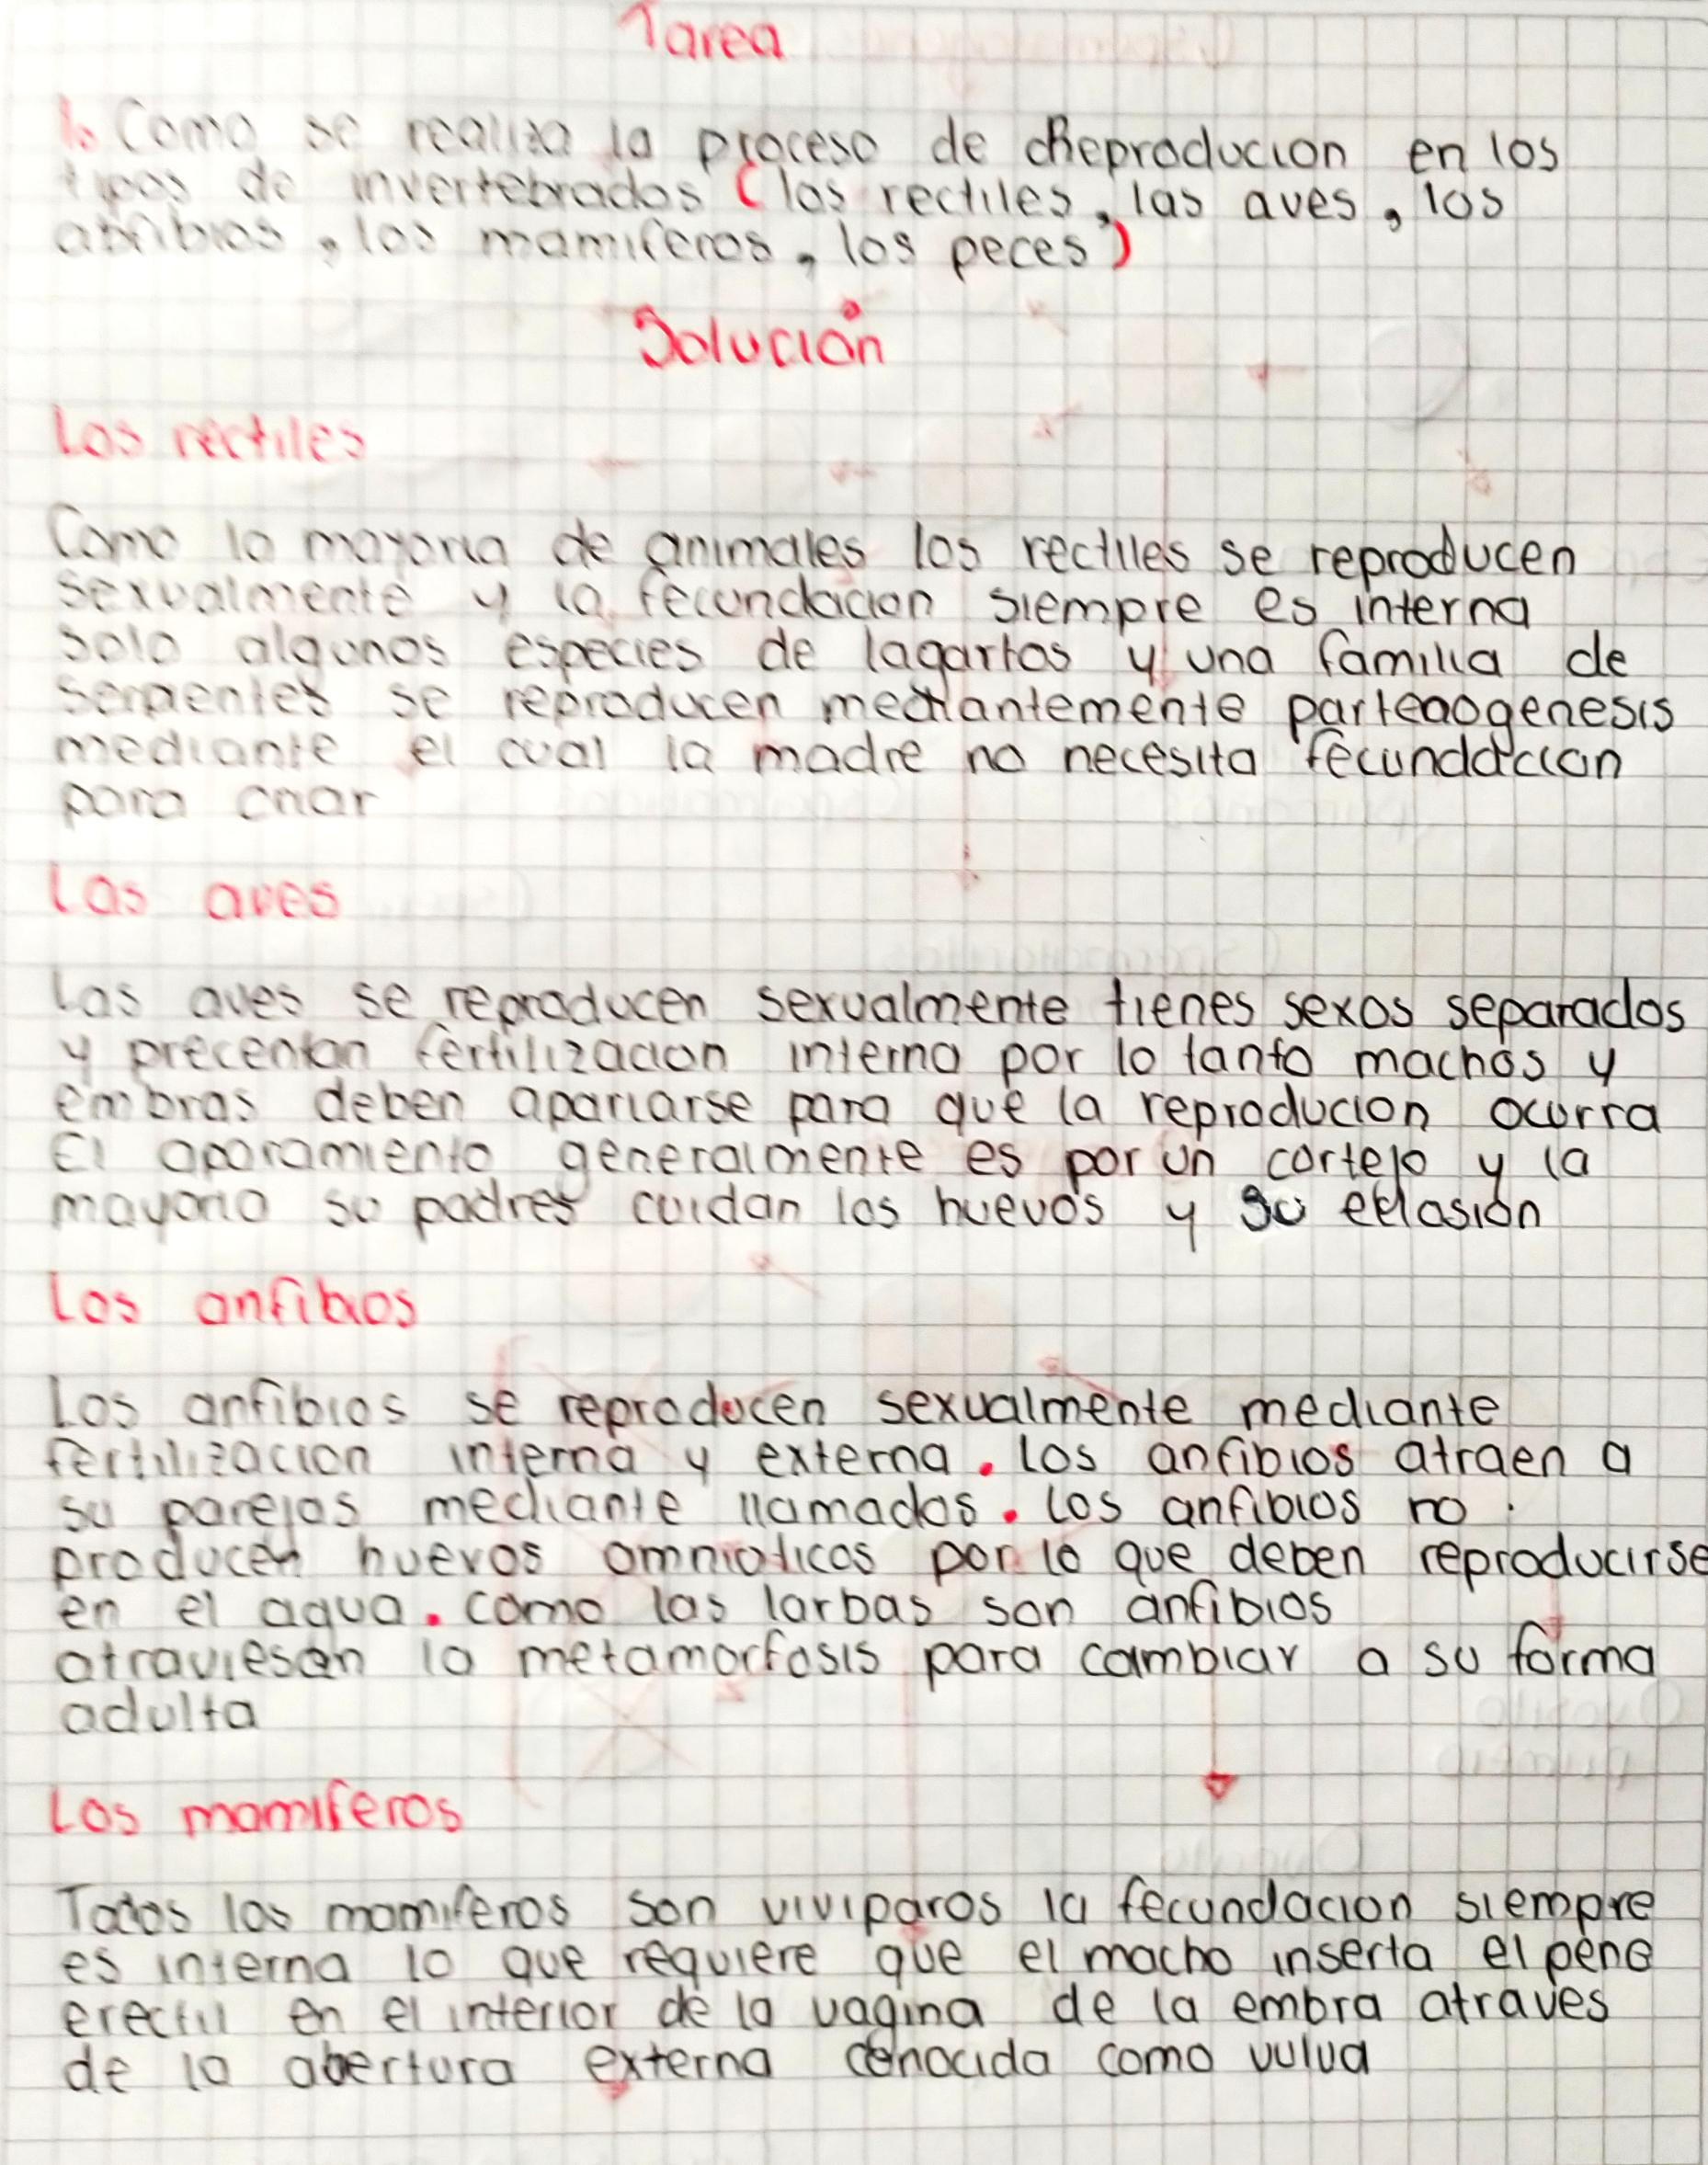 Tarea
1. Como se realiza la proceso de Reproducion en los
tipos de invertebrados (los rectiles, las aves, los
abfibios, los mamiferos, los peces)
Solución
Los rectiles
Como la mayoria de animales los rectiles se reproducen
sexualmente y la fecundacion siempre es interna
solo algunos especies de lagartos y una familia de
serpientes se reproducen mediantemente partenogenesis
mediante el cual la madre no necesita fecundacion
para criar
Las aves
Las aves se reproducen sexualmente tienes sexos separados
y precentan fertilizacion interna por lo tanto machos y
embras deben apariarse para que la reproducion ocurra
El aparamiento generalmente es por un cortejo y la
mayoria su padres cuidan los huevos y su eclasión
Los anfibios
Los anfibios se reproducen sexualmente mediante
fertilizacion interna y externa. los anfibios atraen a
su parejas mediante llamados. los anfibios no
producen huevos amnioticos por lo que deben reproducirse
en el agua. como las larbas son anfibios
atraviesan la metamorfosis para cambiar a su forma
adulta
Los mamiferos
Todos los mamiferos son viviparos la fecundacion siempre
es interna lo que requiere que el macho inserta el pene
erectil en el interior de la vagina de la embra atraves
de la abertura externa conocida como vulva